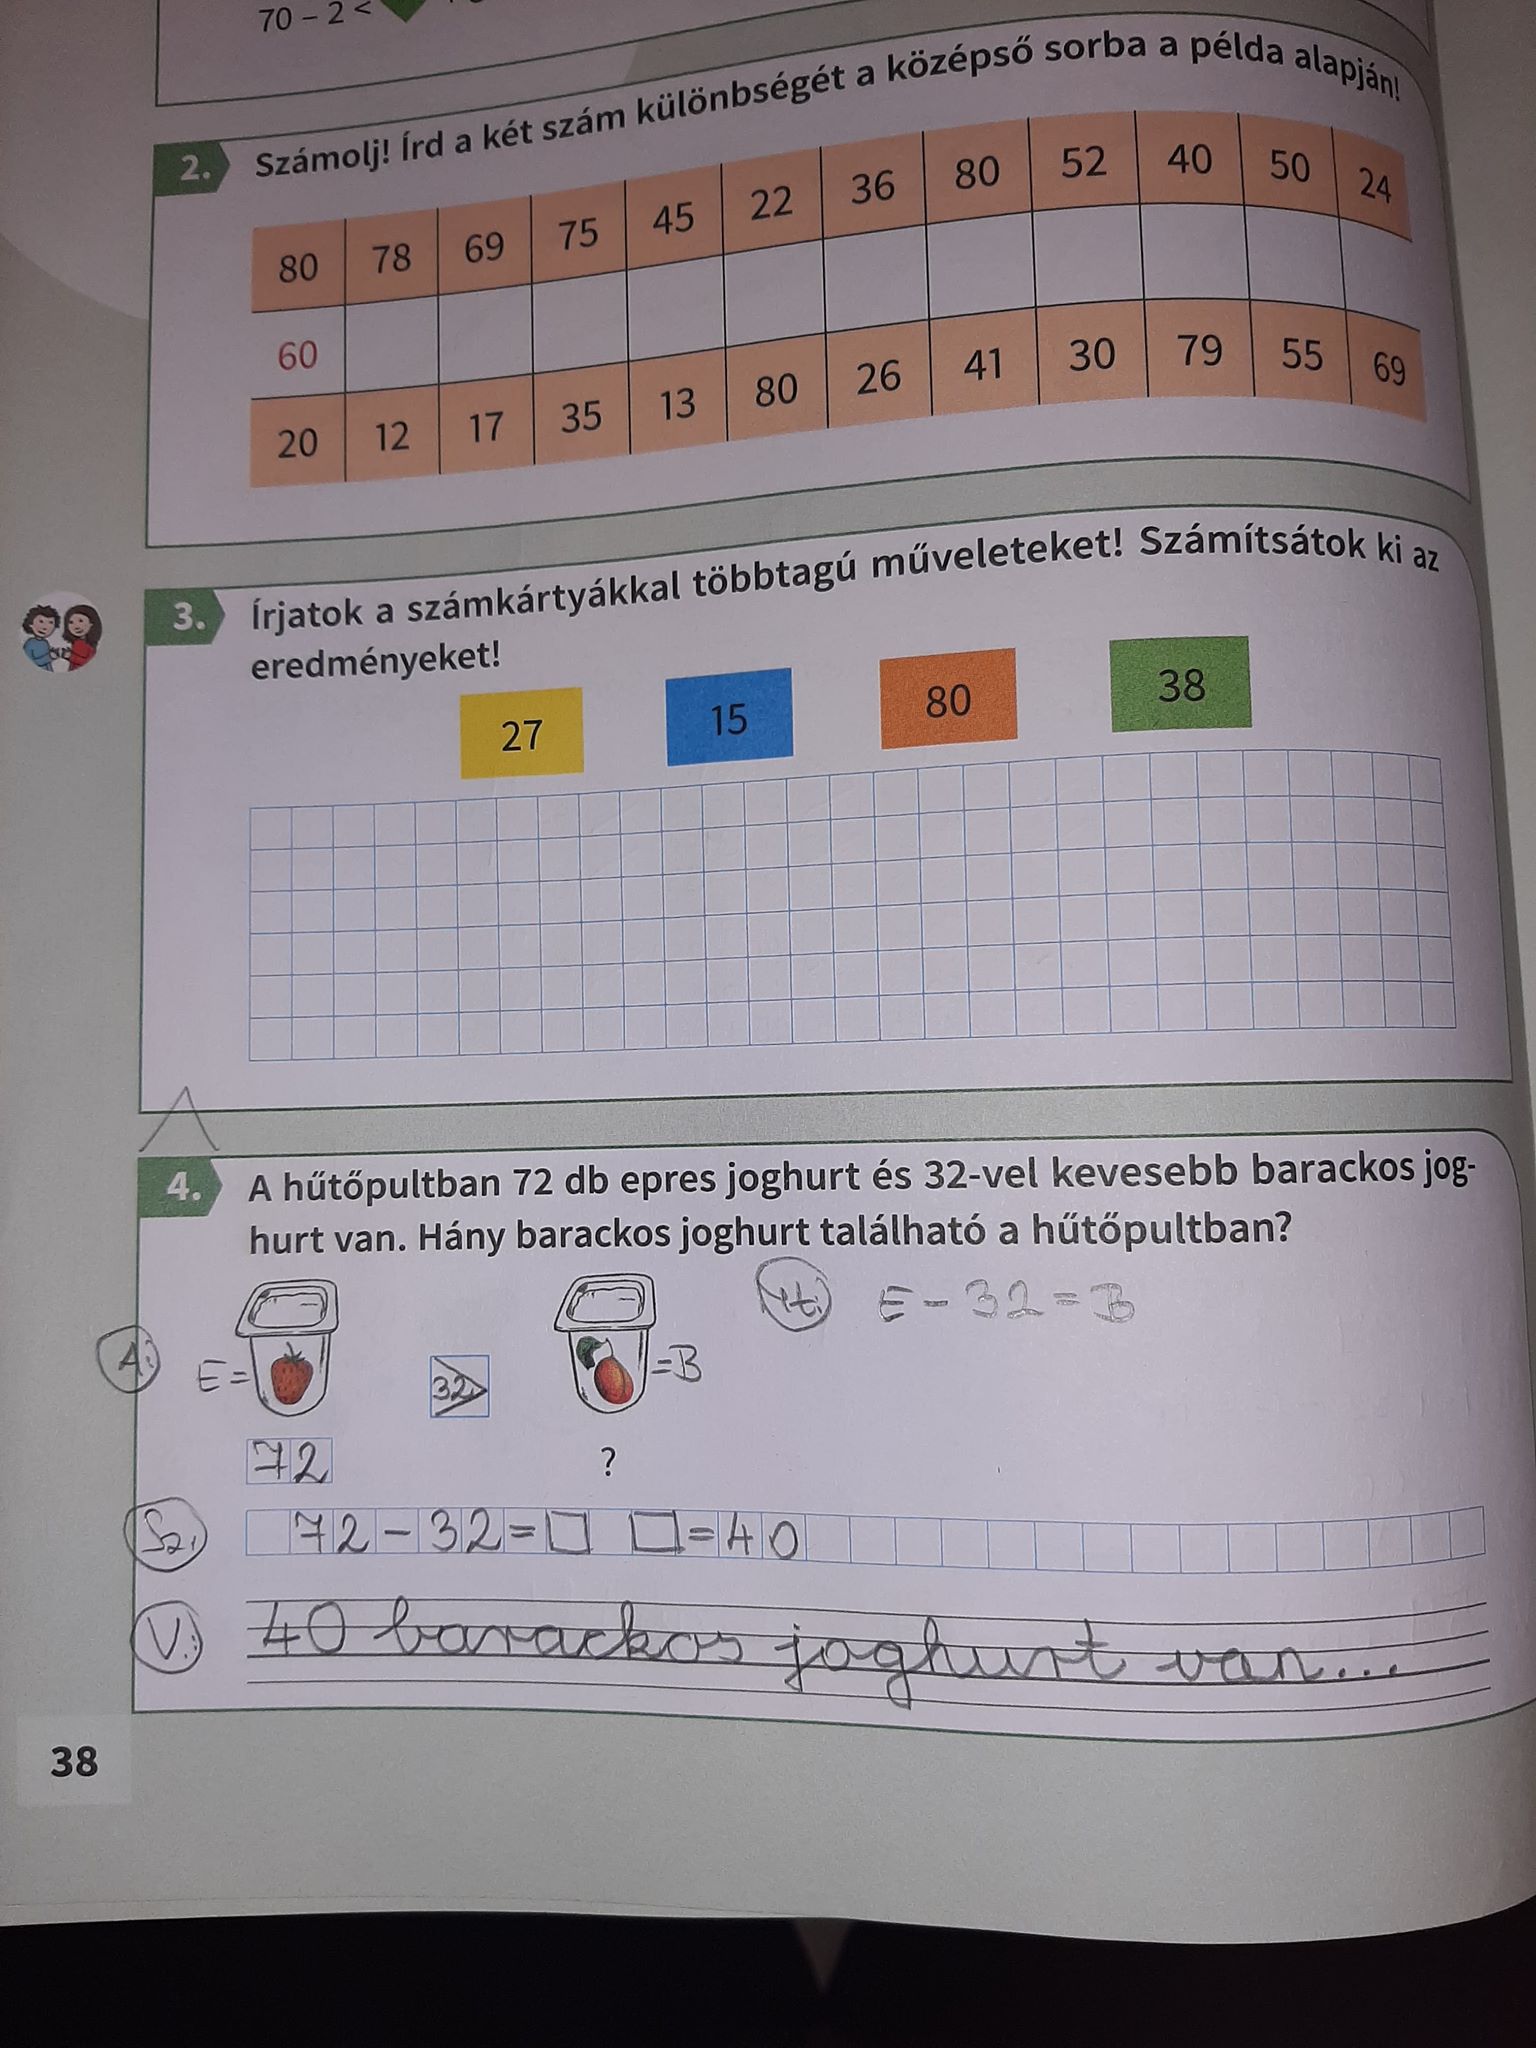 70 – 2 <
2. Számolj! Írd a két szám különbségét a középső sorba a példa alapján!
80 78 69 75 45 22 36 80 52 40 50 24
60
20 12 17 35 13 80 26 41 30 79 55 69
3. Írjatok a számkártyákkal többtagú műveleteket! Számítsátok ki az
eredményeket!
27 15 80 38
4. A hűtőpultban 72 db epres joghurt és 32-vel kevesebb barackos jog-
hurt van. Hány barackos joghurt található a hűtőpultban?
E - 32 = B
A: E = 32 = B
72 ?
Sz. 72 - 32 = □ □ = 40
V: 40 barackos joghurt van...
38